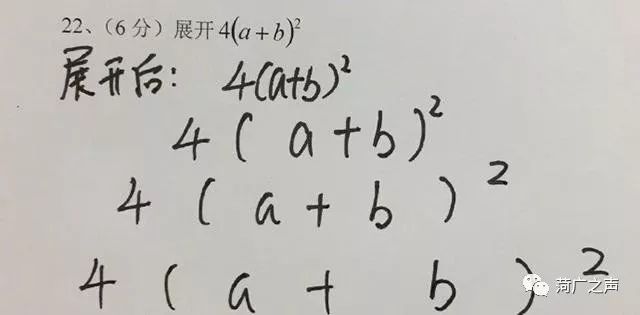 22、（6 分）展开 4(a+b)²
展开后： 4(a+b)²
4 ( a+b)²
4 ( a + b )²
4 ( a + b )²
菏广之声